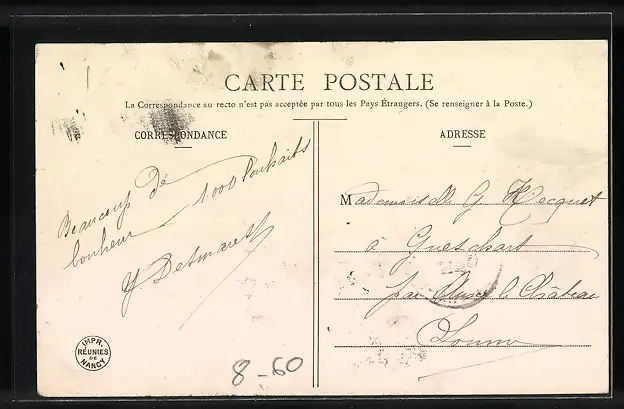 CARTE POSTALE
La Correspondance au recto n'est pas acceptée par tous les Pays Étrangers. (Se renseigner à la Poste.)
CORRESPONDANCE
Beaucoup de
bonheur 1000 Souhaits
Y Desmarest
IMPR.
RÉUNIES
DE
NANCY
8-60
ADRESSE
Mademoiselle G Hecquet
à Gueschart
par Auxi le Château
Somme